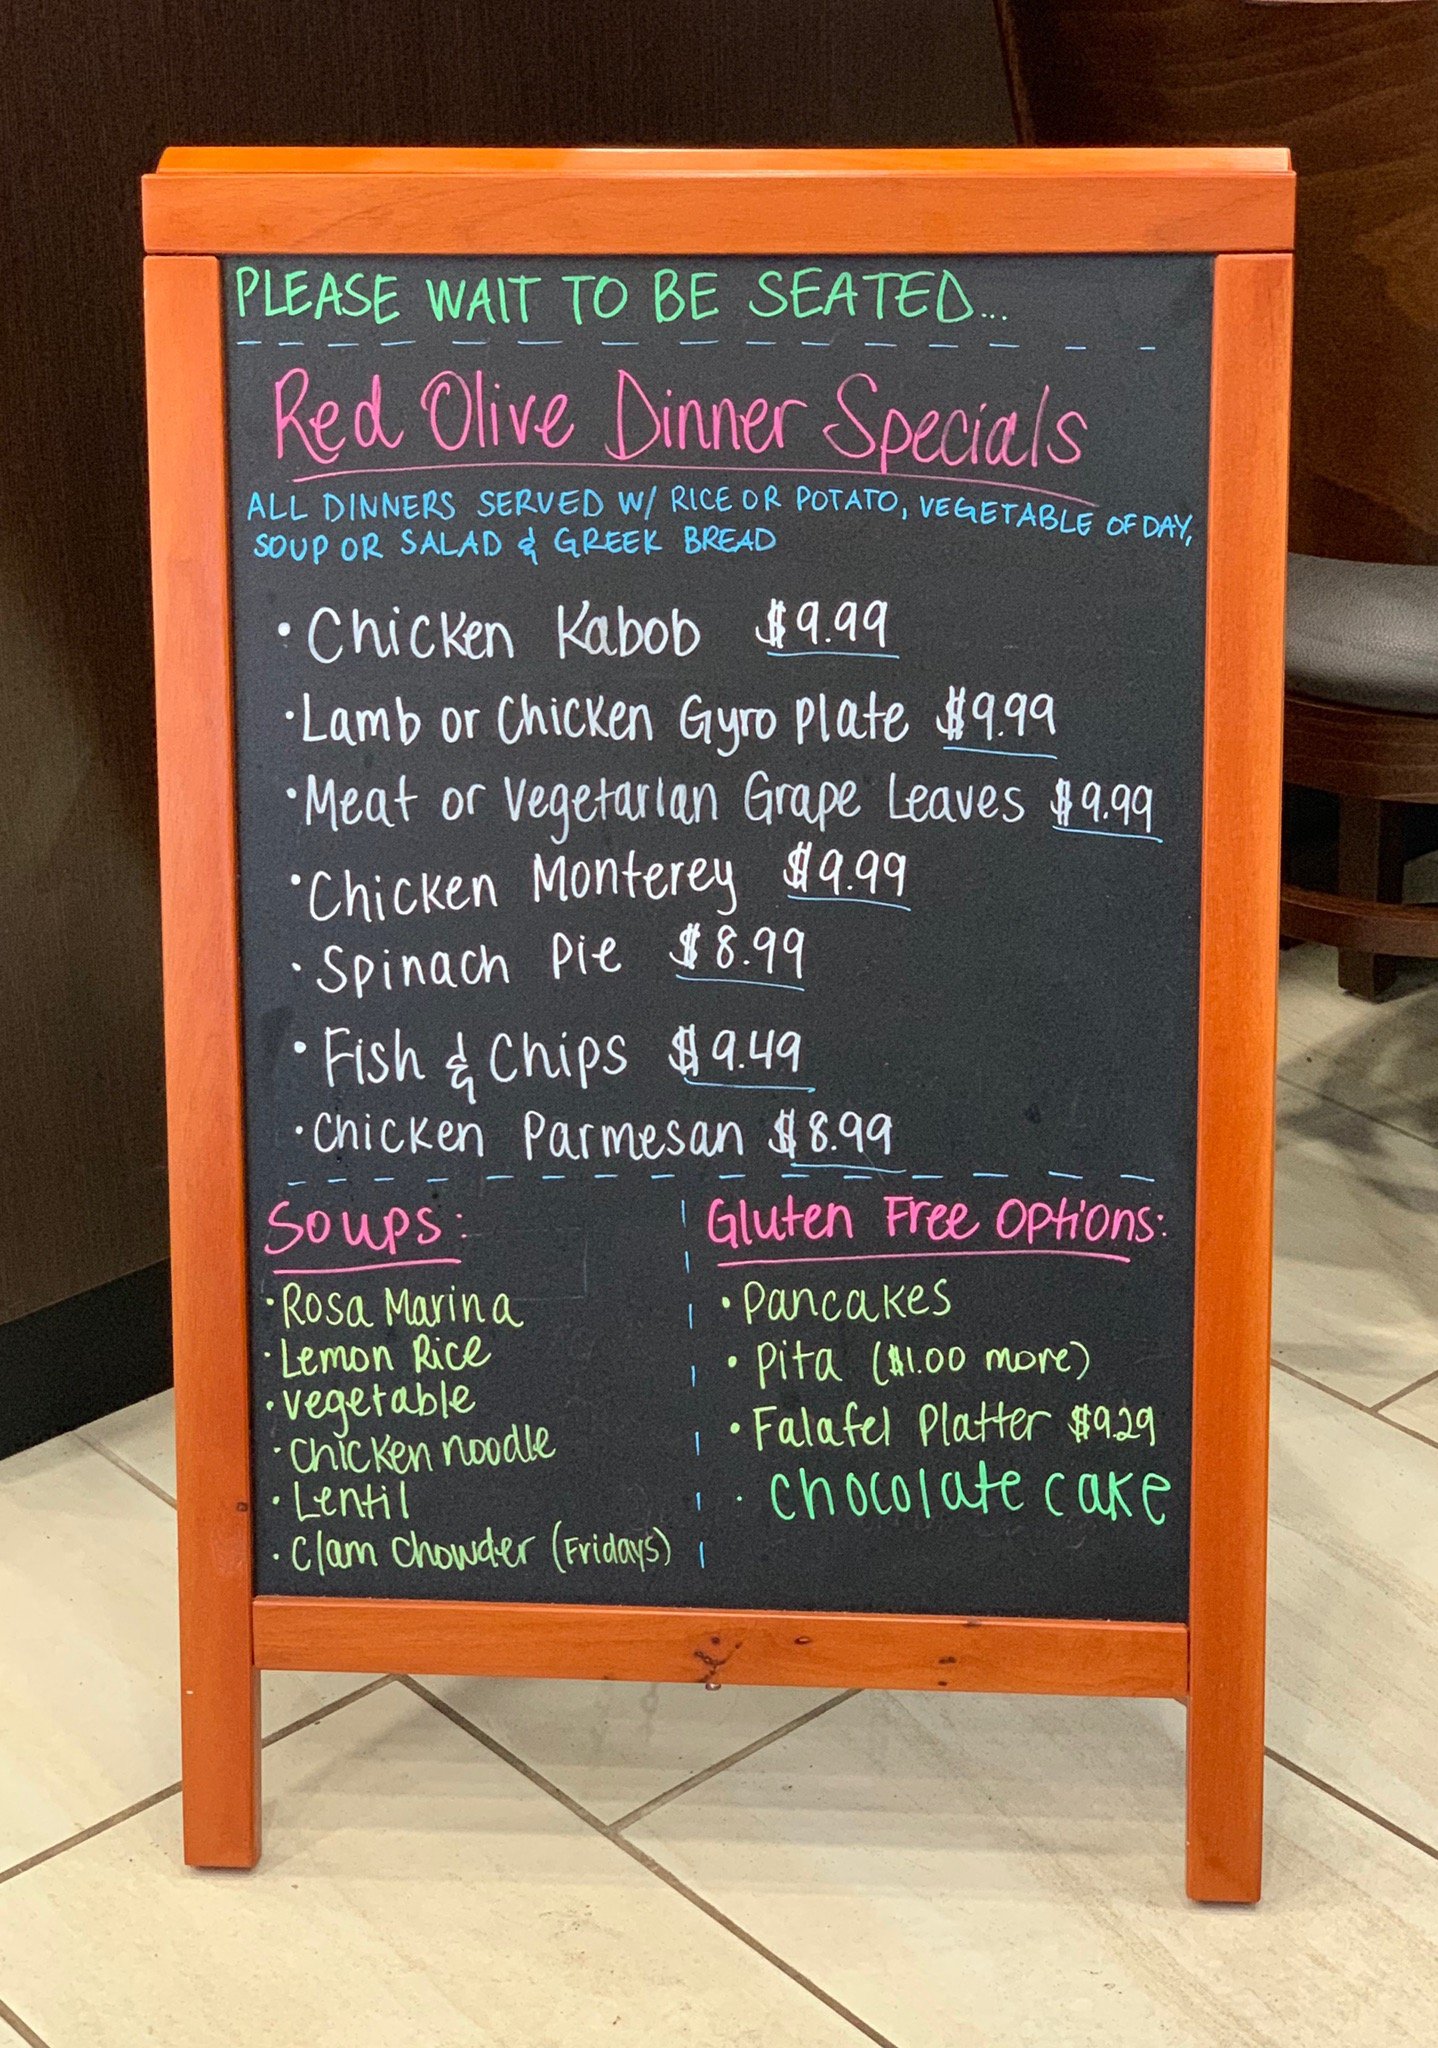 PLEASE WAIT TO BE SEATED...
Red Olive Dinner Specials
ALL DINNERS SERVED W/ RICE OR POTATO, VEGETABLE OF DAY,
SOUP OR SALAD & GREEK BREAD
• Chicken Kabob $9.99
• Lamb or Chicken Gyro Plate $9.99
• Meat or Vegetarian Grape Leaves $9.99
• Chicken Monterey $9.99
• Spinach Pie $8.99
• Fish & Chips $9.49
• Chicken Parmesan $8.99
Soups:
• Rosa Marina
• Lemon Rice
• Vegetable
• Chicken noodle
• Lentil
• Clam Chowder (Fridays)
Gluten Free Options:
• Pancakes
• Pita ($1.00 more)
• Falafel Platter $9.29
• chocolate cake